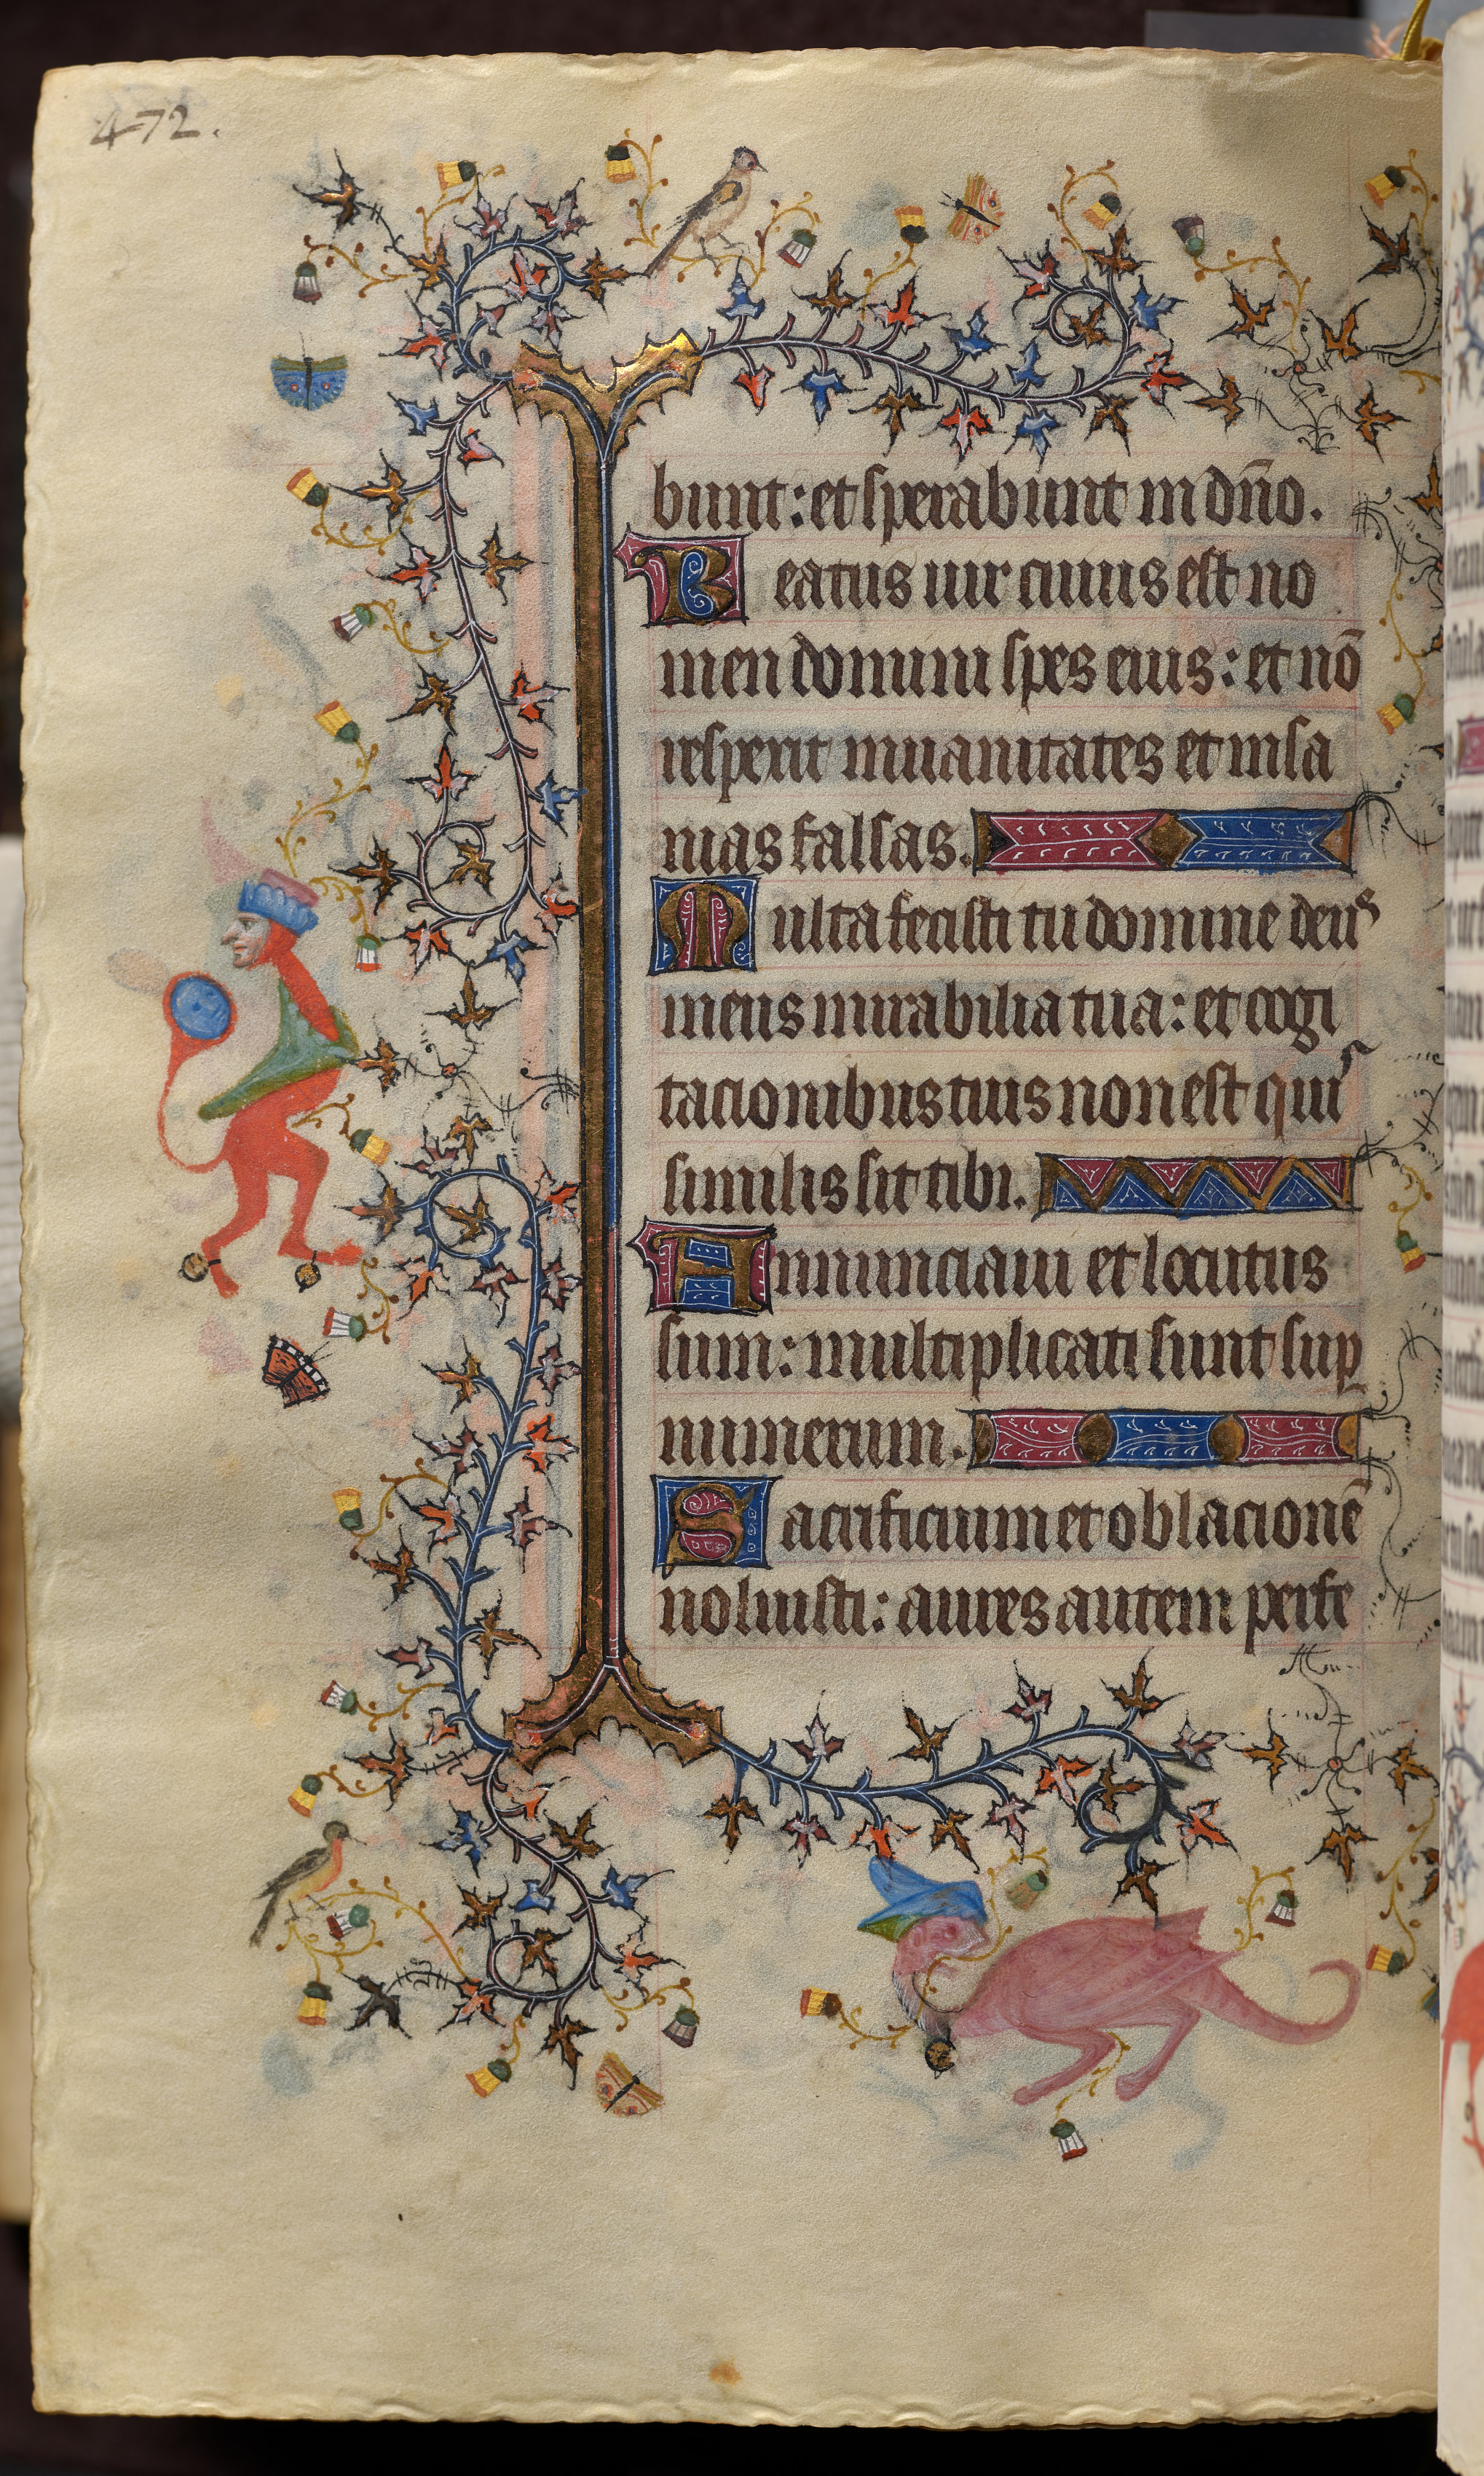 472.
bunt: et sperabunt in dño.
Beatus uir cuius est no
men domini spes eius: et nō
respexit in uanitates et insa
nias falsas.
Multa fecisti tu domine deus
meus mirabilia tua: et cogi
tacionibus tuis non est qui
similis sit tibi.
Annunciaui et locutus
sum: multiplicati sunt sup
numerum.
Sacrificium et oblacionē
noluisti: aures autem perfe